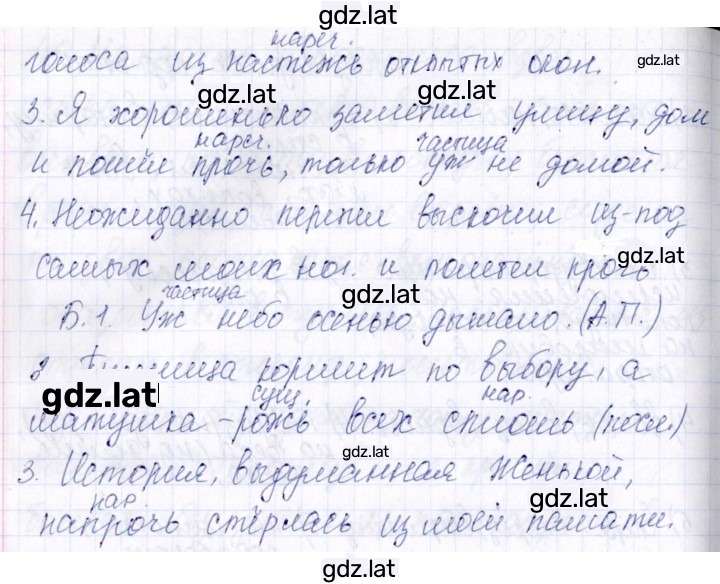 gdz.lat
нареч. gdz.lat
голоса из настежь открытых окон.
gdz.lat gdz.lat
3. Я хорошенько заметил улицу, дом
нареч. частица
и пошёл прочь, только уж не домой.
4. Неожиданно перепел выскочил из-под
gdz.lat
самых моих ног и полетел прочь
частица gdz.lat
Б.1. Уж небо осенью дышало. (А.П.)
кормит по выбору, а
gdz.lat сущ. нар.
матушка-рожь всех сплошь (посл.)
gdz.lat
3. История, выдуманная Женькой,
нар. gdz.lat
напрочь стёрлась из моей памяти.
gdz.lat